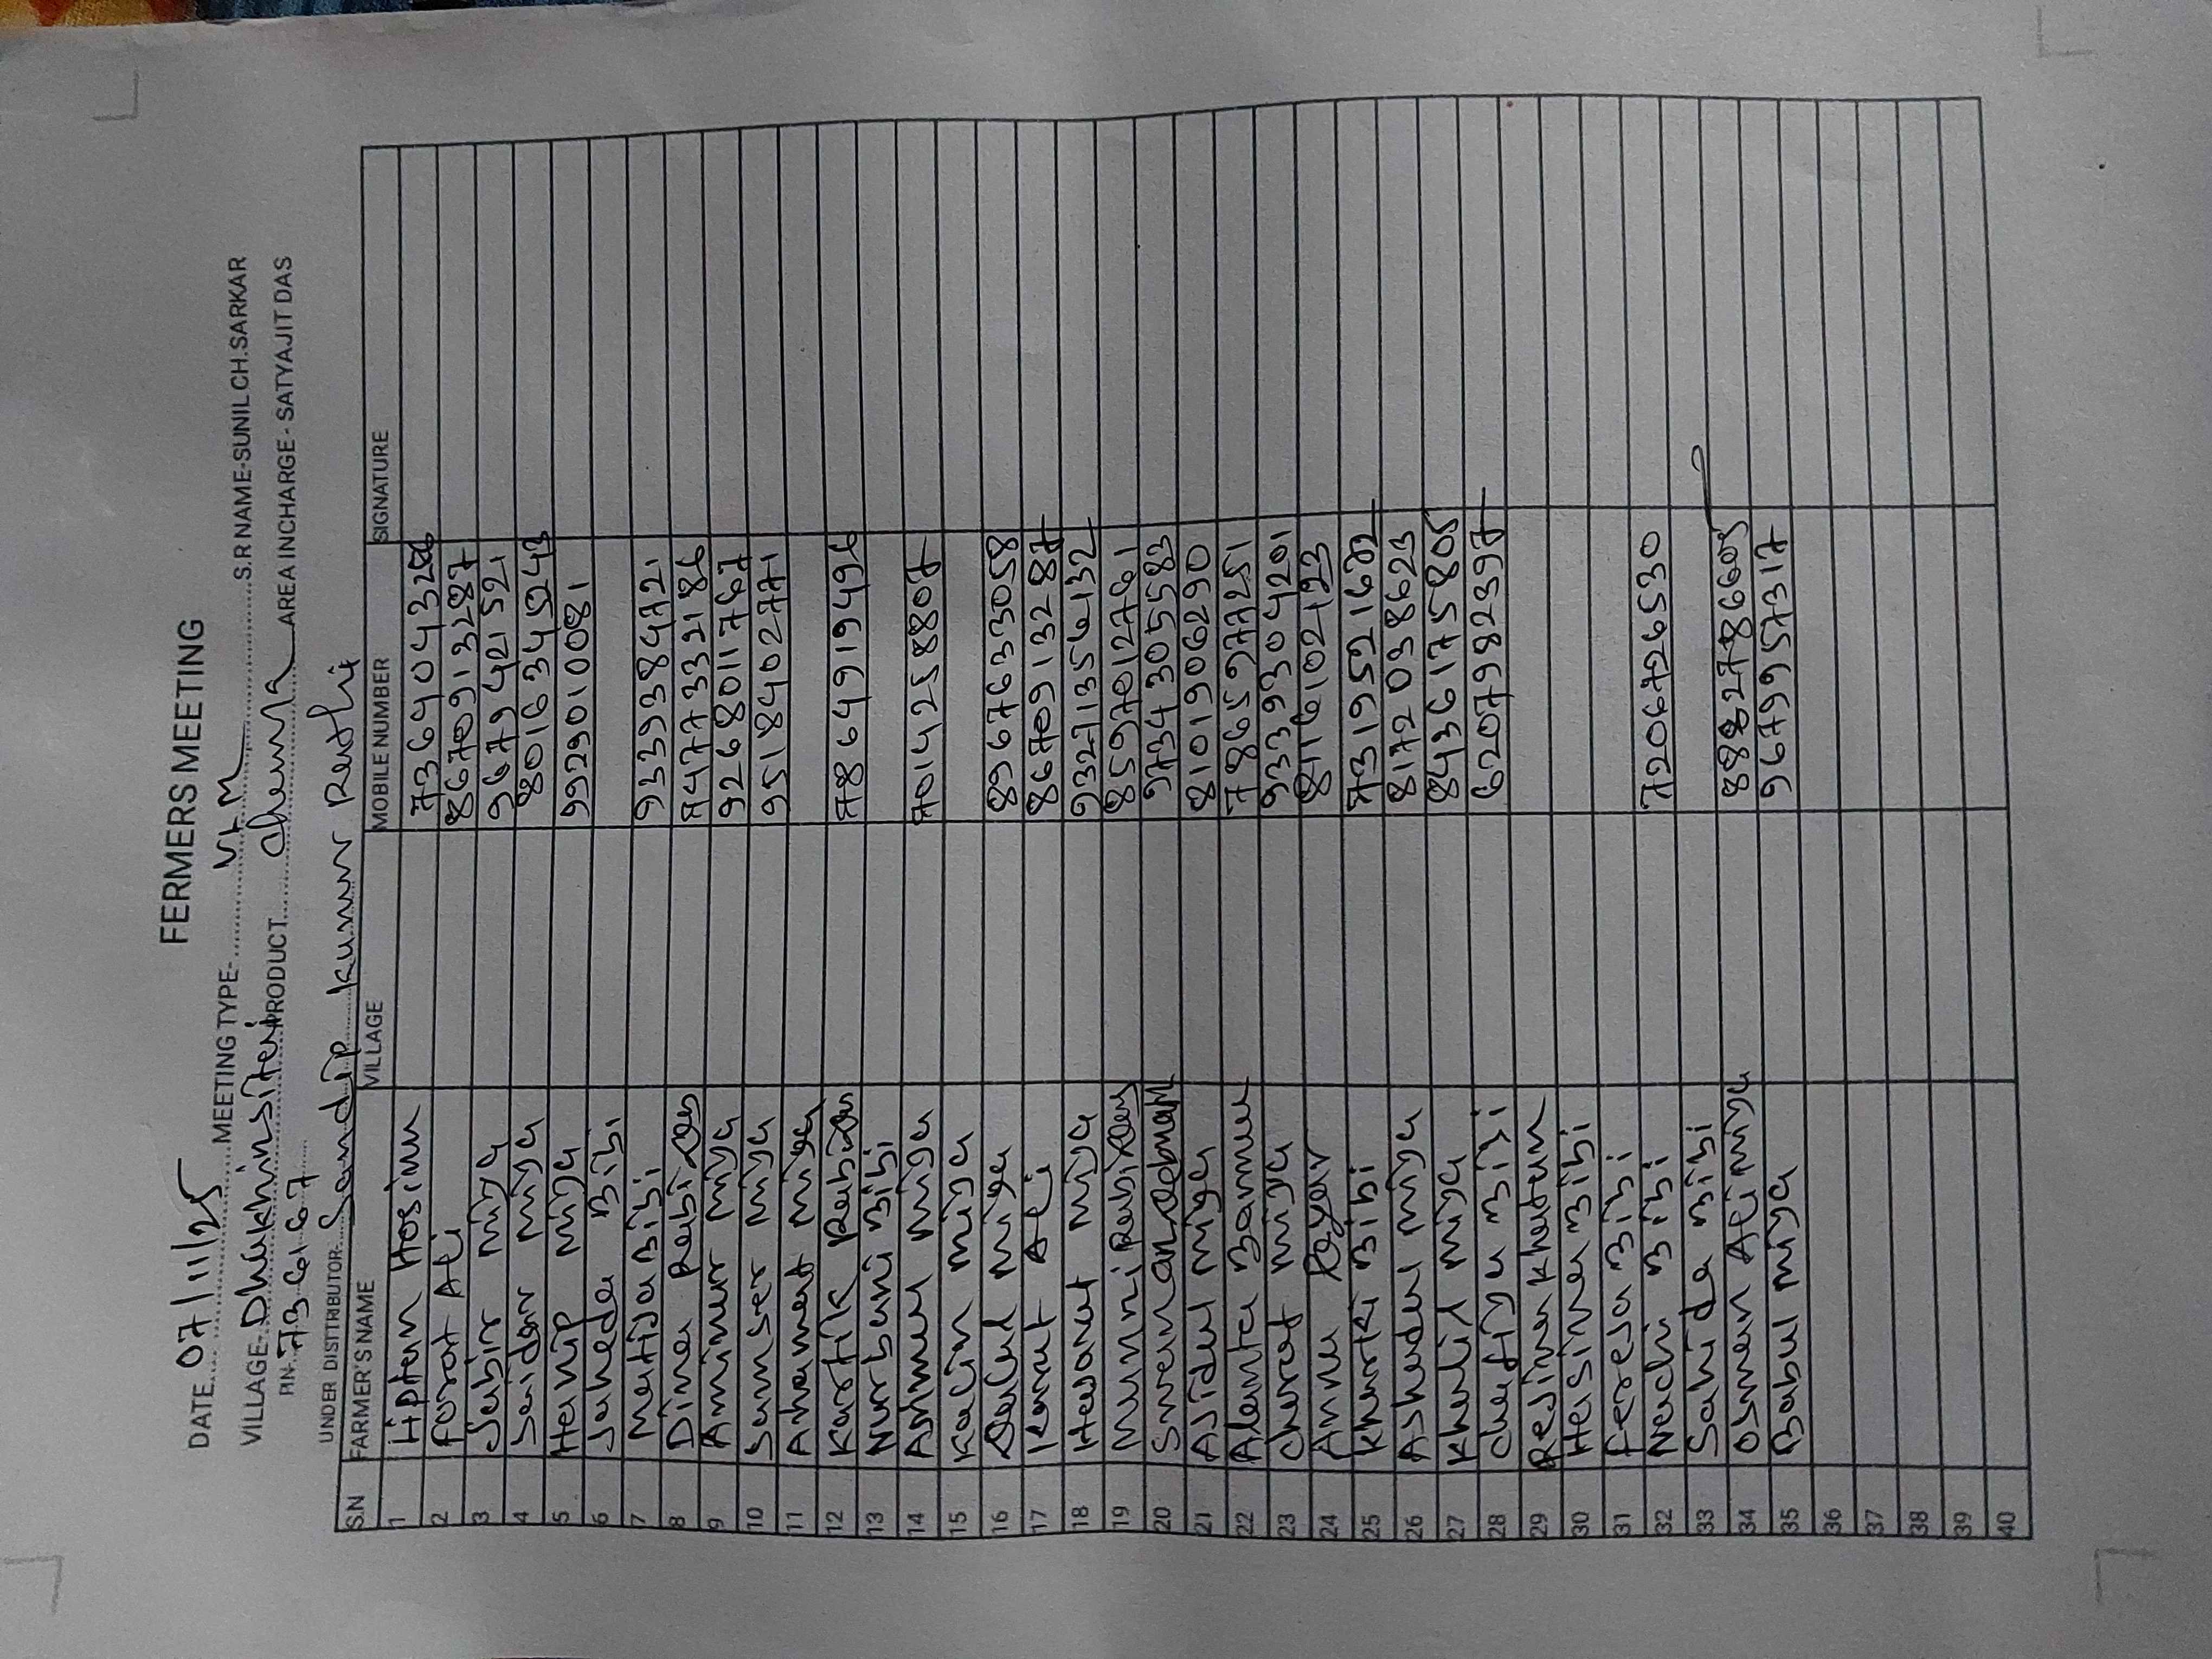 FERMERS MEETING
DATE. 07/11/25 MEETING TYPE- V.M S.R NAME-SUNIL.CH.SARKAR
VILLAGE- Dhukhinsiteri PRODUCT. Chema AREA INCHARGE - SATYAJIT DAS
PIN. 736167
UNDER DISTTRIBUTOR- Sandip kumar Rathi
S.N FARMER'S NAME VILLAGE MOBILE NUMBER SIGNATURE
1 Liptan Hosinu
2 Forat Ali 8670913287
3 Sabir miya 9679421521
4 Saidar miya 8016345243
5 Hanip miya 9929010081
6 Jaheda Bibi
7 Martija Bibi 9339384721
8 Dina Rabidas 7477332186
9 Aminur miya 9268011767
10 Samser miya 9518402771
11 Ahamad miya
12 Kartik Rabidas 7864919496
13 Nurbani Bibi
14 Asmul miya 7014258807
15 Kalin miya
16 Dalul miya 8967633058
17 Karat Ali 8670913287
18 Hasanut miya 93271356132
19 Munni Rabidas 8597012761
20 9734305583
21 Ajidul miya 8101906290
22 Alanta Barman 7865977251
23 Churat miya 9339304201
24 Annu
25 Khurti Bibi 7319521682
26 Ashadul miya 8172038623
27 Khalil miya 8436175805
28 Chaftya Bibi 6207982397
29 Rejina Khatun
30 Hasina Bibi
31 Fereja Bibi
32 Nachi Bibi 7206726530
33 Sahida Bibi
34 Osman Ali miya
35 Babul miya 9679957317
36
37
38
39
40